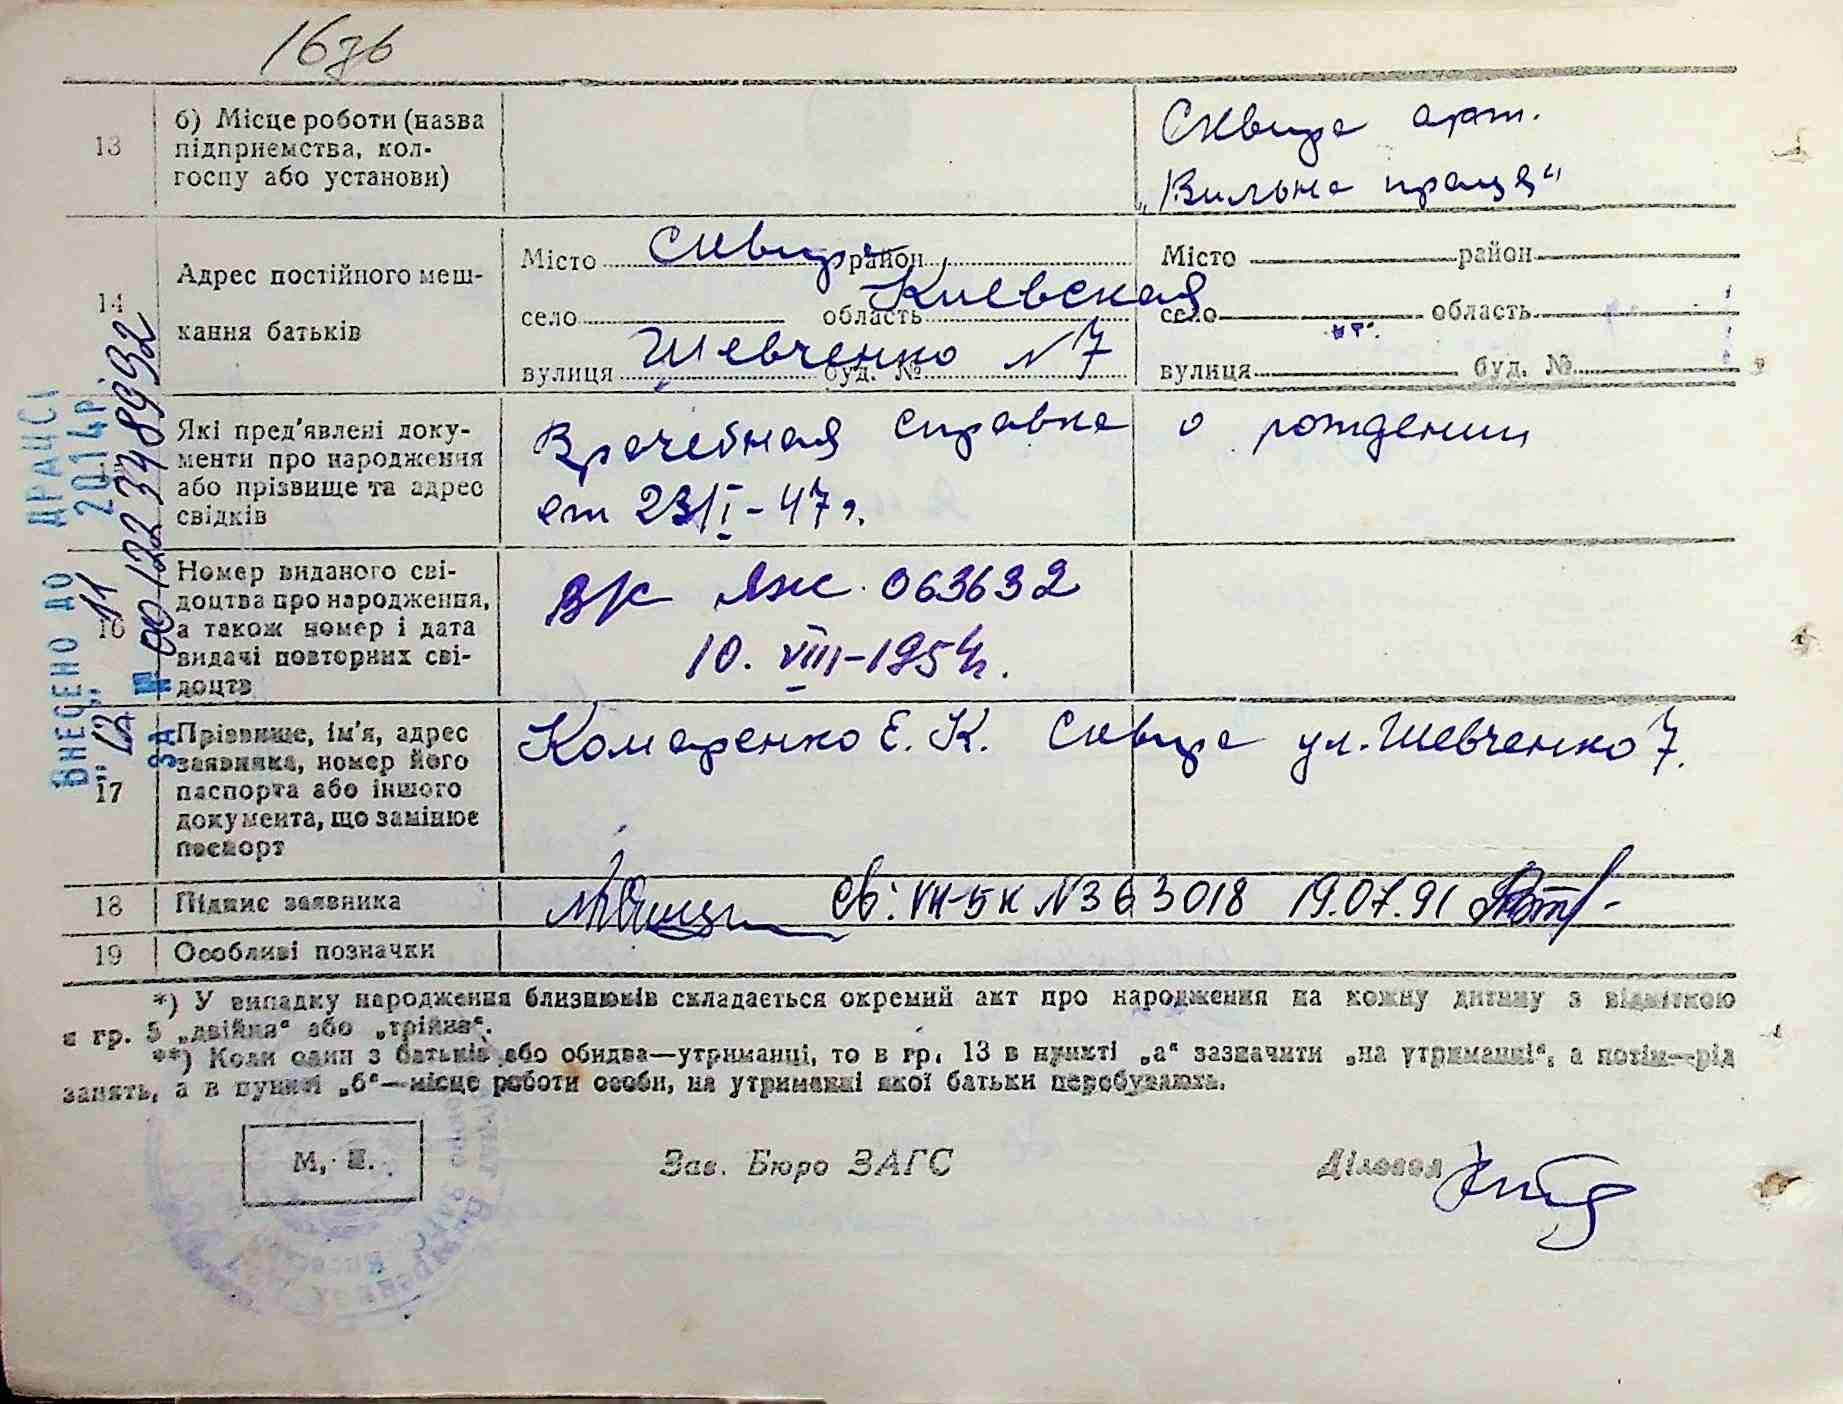 16зв
13
б) Місце роботи (назва
підприємства, кол-
госпу або установи)
Сквира арт.
„Вильна праця“
14
Адрес постійного меш-
кання батьків
Місто Сквира район
село область Киевская
вулиця Шевченко буд. № N 7
Місто район
село область
вулиця буд. №
Які пред'явлені доку-
менти про народження
або прізвище та адрес
свідків
Врачебная справка о рождении
от 23/I-47г.
16
Номер виданого сві-
доцтва про народження,
а також номер і дата
видачі повторних сві-
доцтв
ЯЖ 063632
10. VIII-1954г.
17
Прізвище, ім'я, адрес
заявника, номер його
паспорта або іншого
документа, що замінює
паспорт
Комаренко Е. К. Сквира ул. Шевченко 7.
18
Підпис заявника
Св: VII-БК N 363018 19.07.91
19
Особливі позначки
*) У випадку народження близнюків складається окремий акт про народження на кожну дитину з відміткою
в гр. 5 „двійня“ або „трійня“.
**) Коли один з батьків або обидва—утриманці, то в гр. 13 в пункті „а“ зазначити „на утриманні“, а потім—рід
занять, а в пункті „б“—місце роботи особи, на утриманні якої батьки перебувають.
М. П.
Зав. Бюро ЗАГС
Діловод
ВНЕСЕНО ДО ДРАЦСІ
„12“ 11 2014р
ЗА № 00122348932